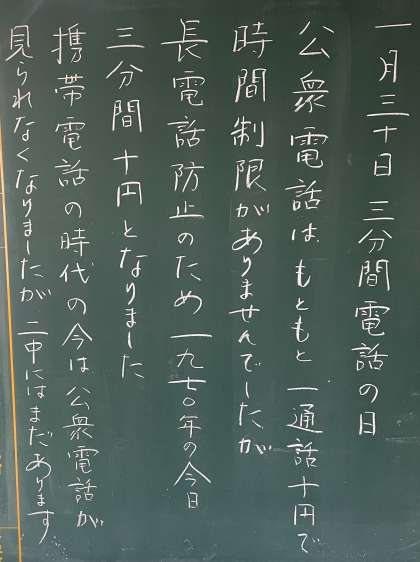 一月三十日 三分間電話の日
公衆電話は もともと 一通話十円で
時間制限がありませんでしたが
長電話防止のため 一九七〇年の今日
三分間 十円となりました
携帯電話の時代の今は 公衆電話が
見られなくなりましたが 二中にはまだあります